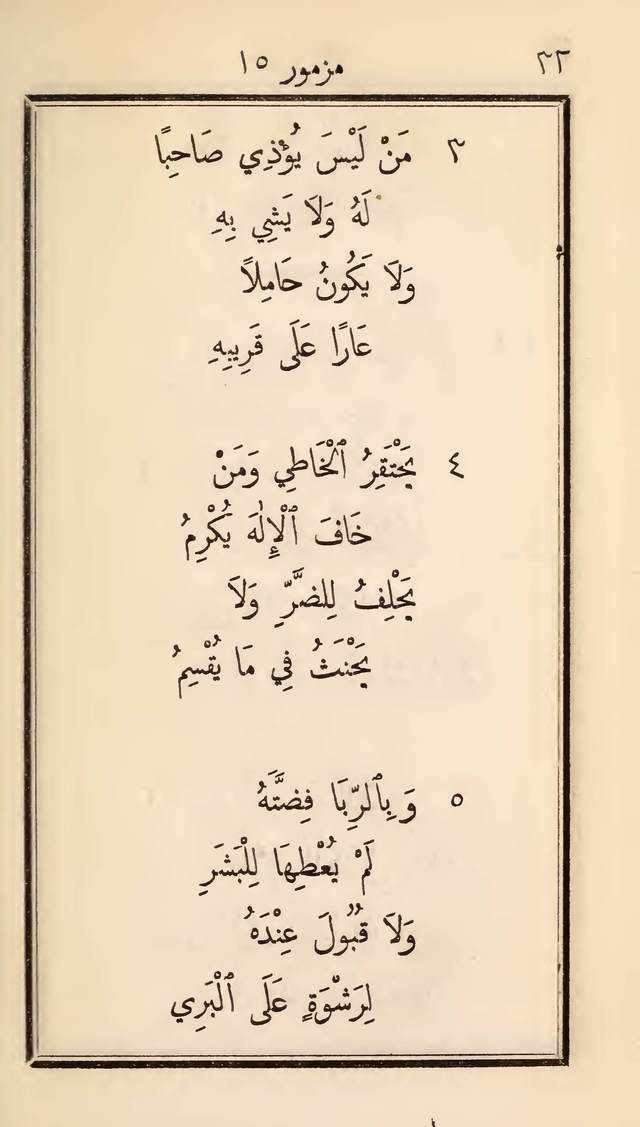 ٣٢ مزمور ١٥
٣ مَنْ لَيْسَ يُؤْذِي صَاحِبًا
لَهُ وَلَا يَشِي بِهِ
وَلَا يَكُونُ حَامِلاً
عَارًا عَلَى قَرِيبِهِ
٤ يَحْتَقِرُ ٱلْخَاطِي وَمَنْ
خَافَ ٱلْإِلٰهَ يُكْرِمُ
يَحْلِفُ لِلضَّرِّ وَلَا
يَحْنَثُ فِي مَا يُقْسِمُ
٥ وَبِٱلرِّبَا فِضَّتَهُ
لَمْ يُعْطِهَا لِلْبَشَرِ
وَلَا قُبُولَ عِنْدَهُ
لِرَشْوَةٍ عَلَى ٱلْبَرِي